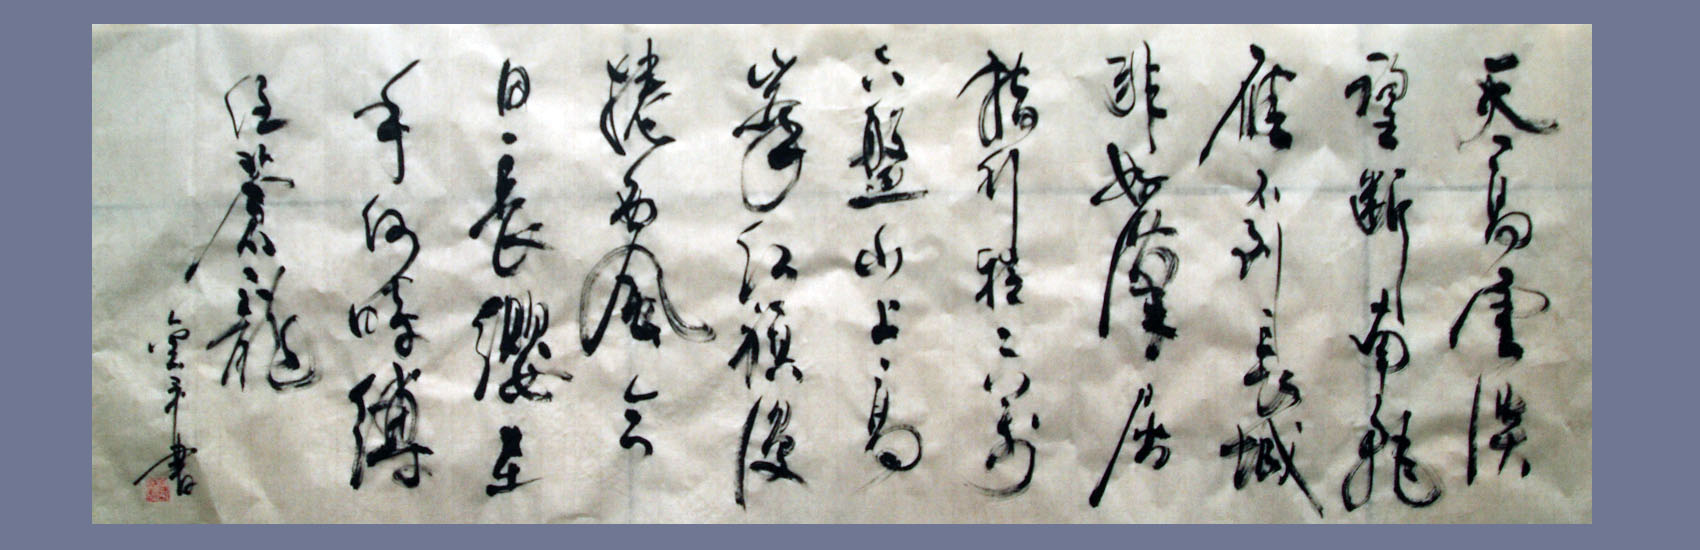 天高雲淡
望斷南飛
雁不到長城
非好漢屈
指行程二万
六盤山上高
峯紅旗漫
捲西風今
日長纓在
手何時縛
住蒼龍
平書